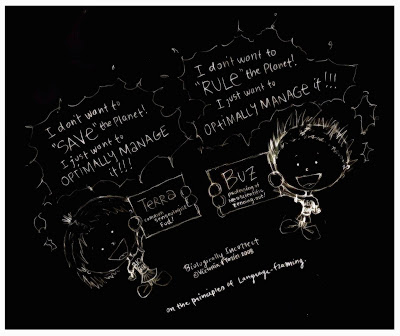 I don't want to
"SAVE" the Planet!
I just want to
OPTIMALLY MANAGE
it!!!
I don't want to
"RULE" the Planet!
I just want to
OPTIMALLY MANAGE it!!!
TERRA
Fud!
BUZ
Biologically Incorrect
2008
on the principles of Language-Framing.